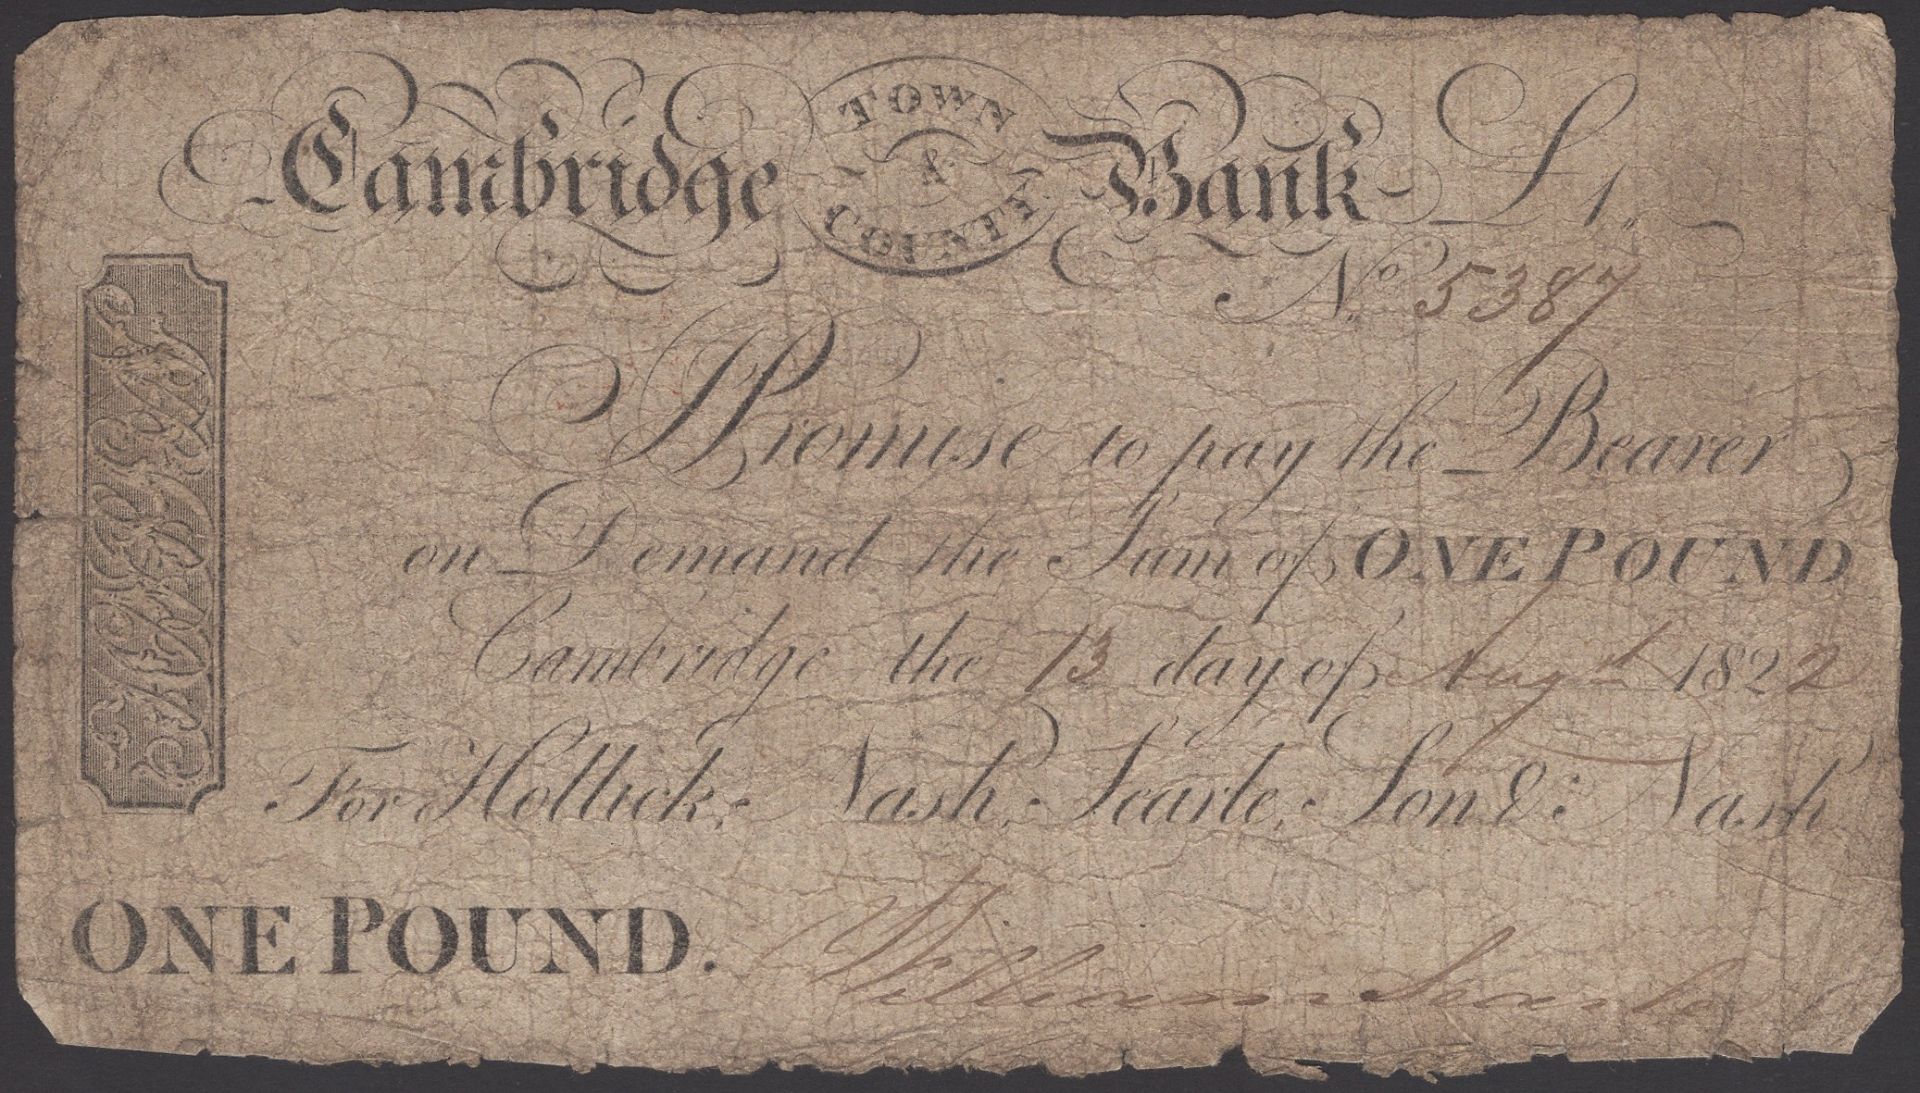 Cambridge TOWN & COUNTY Bank £1.
No. 5387
I Promise to pay the Bearer
on Demand the Sum of ONE POUND
Cambridge the 13 day of Augst 1822
For Hollick, Nash, Searle, Son & Nash
ONE POUND. William Searle